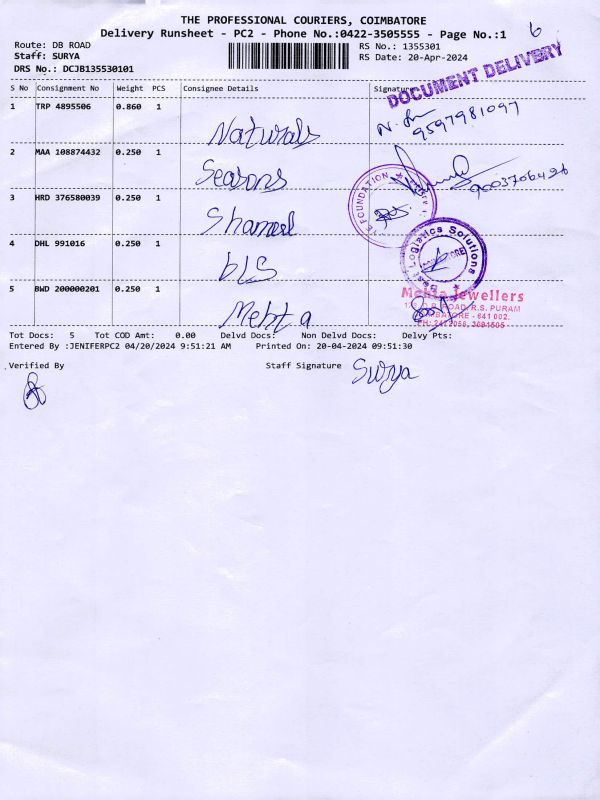 THE PROFESSIONAL COURIERS, COIMBATORE
Delivery Runsheet - PC2 - Phone No.:0422-3505555 - Page No.:1
6
Route: DB ROAD
RS No.: 1355301
Staff: SURYA
RS Date: 20-Apr-2024
DRS No.: DCJB135530101
DOCUMENT DELIVERY
S No Consignment No Weight PCS Consignee Details Signature
1 TRP 4895506 0.860 1 Naturals 9597981097
2 MAA 108874432 0.250 1 Seasons 9003706426
FOUNDATION
3 HRD 376580039 0.250 1 Shameel
Logistics Solutions
4 DHL 991016 0.250 1 bLS
5 BWD 200000201 0.250 1 Mehta
Mehta Jewellers
ROAD, R.S. PURAM
- 641 002.
Tot Docs: 5 Tot COD Amt: 0.00 Delvd Docs: Non Delvd Docs: Delvy Pts:
Entered By :JENIFERPC2 04/20/2024 9:51:21 AM Printed On: 20-04-2024 09:51:30
Verified By Staff Signature Surya